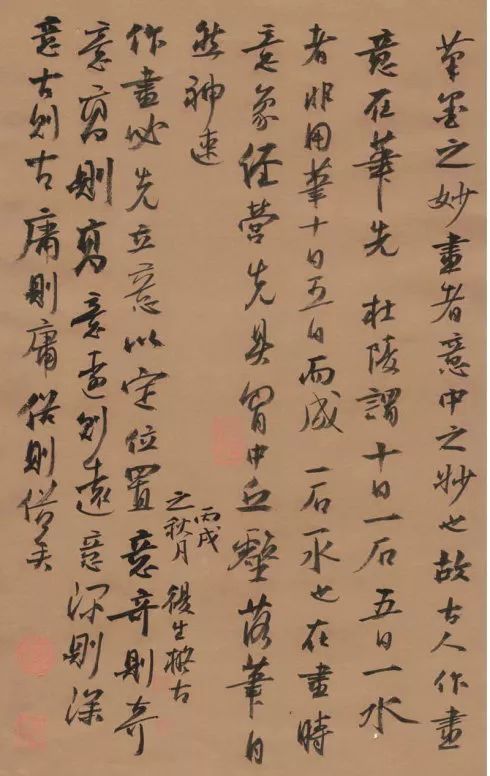 筆墨之妙畫者意中之妙也故古人作畫
意在筆先杜陵謂十日一石五日一水
者非用筆十日五日而成一石一水也在畫時
意象經營先具胸中丘壑落筆自
然神速
作畫必先立意以定位置意奇則奇
意高則高意遠則遠意深則深
意古則古庸則庸俗則俗矣
丙戌
之秋月
後生